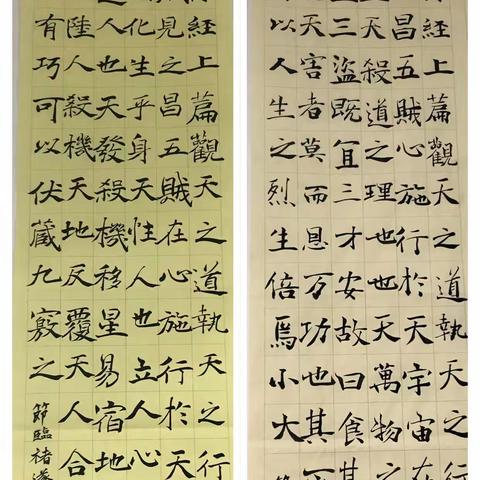 經上篇觀天之道執天之行
見之昌五賊在心施行於天
化生乎身天性人也立人心
人也天發殺機移星易宿地
陸人殺機天地反覆天人合
有巧可以伏藏九竅之
節臨褚遂
經上篇觀天之道執天之行
昌五賊心施行於天宇宙在
天殺道之理也天萬物之
三盜既宜三才安故曰食其
天害者莫而恩万功也其
以人生之烈生倍焉小大